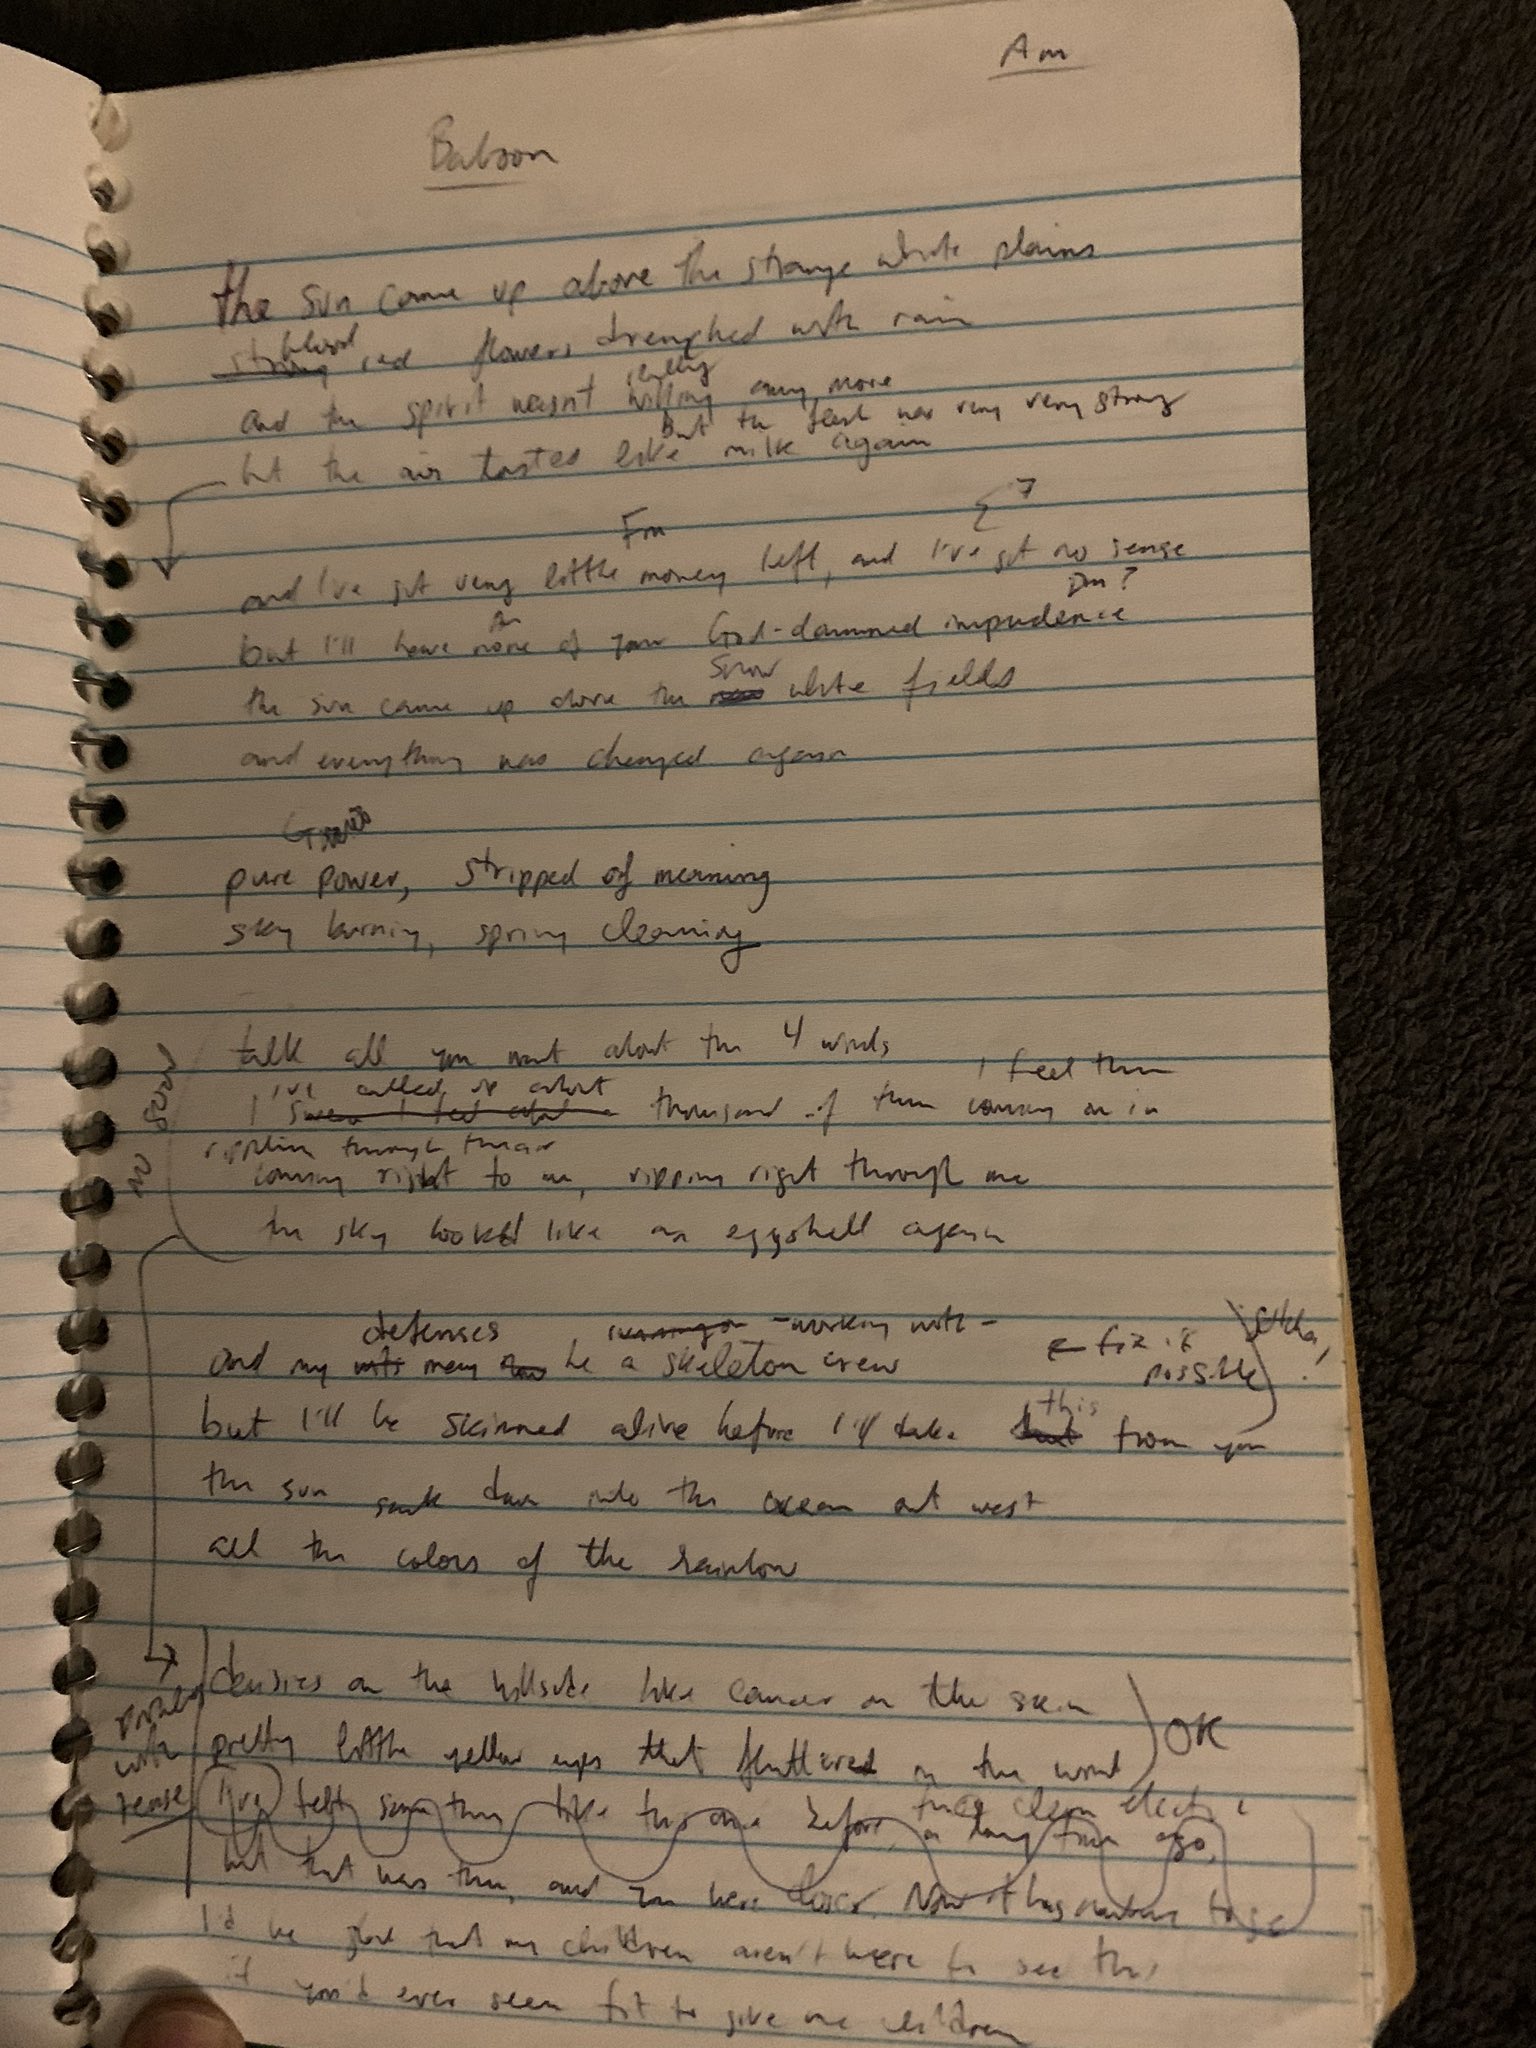 Am
Baboon
the sun came up above the strange white plains
blood
strong red flowers drenched with rain
really
and the spirit wasn't willing any more
but the flesh was very very strong
but the air tasted like milk again
Fm
E7
and I've got very little money left, and I've got no sense
Am
Dm?
but I'll have none of your God-damned impudence
snow
the sun came up above the white fields
and everything was changed again
G
pure power, stripped of meaning
sky burning, spring cleaning
talk all you want about the 4 winds
I feel them
I've called up about
I swear I feel about thousand of them coming on in
rippling through the air
coming right to me, ripping right through me
the sky looked like an eggshell again
no good
defenses , running on -working with-
and my many be a skeleton crew
← fix if possible
this
but I'll be skinned alive before I'll take that from you
the sun sank down into the ocean out west
all the colors of the rainbow
problem with tense
daisies on the hillside like cancer on the skin
pretty little yellow eyes that fluttered in the wind
OK
clean electric
I've felt something like this one before, a long time ago,
but that was then, and you were closer. Now it has nowhere to go
I'd be glad that my children aren't here to see this
if you'd ever seen fit to give me children